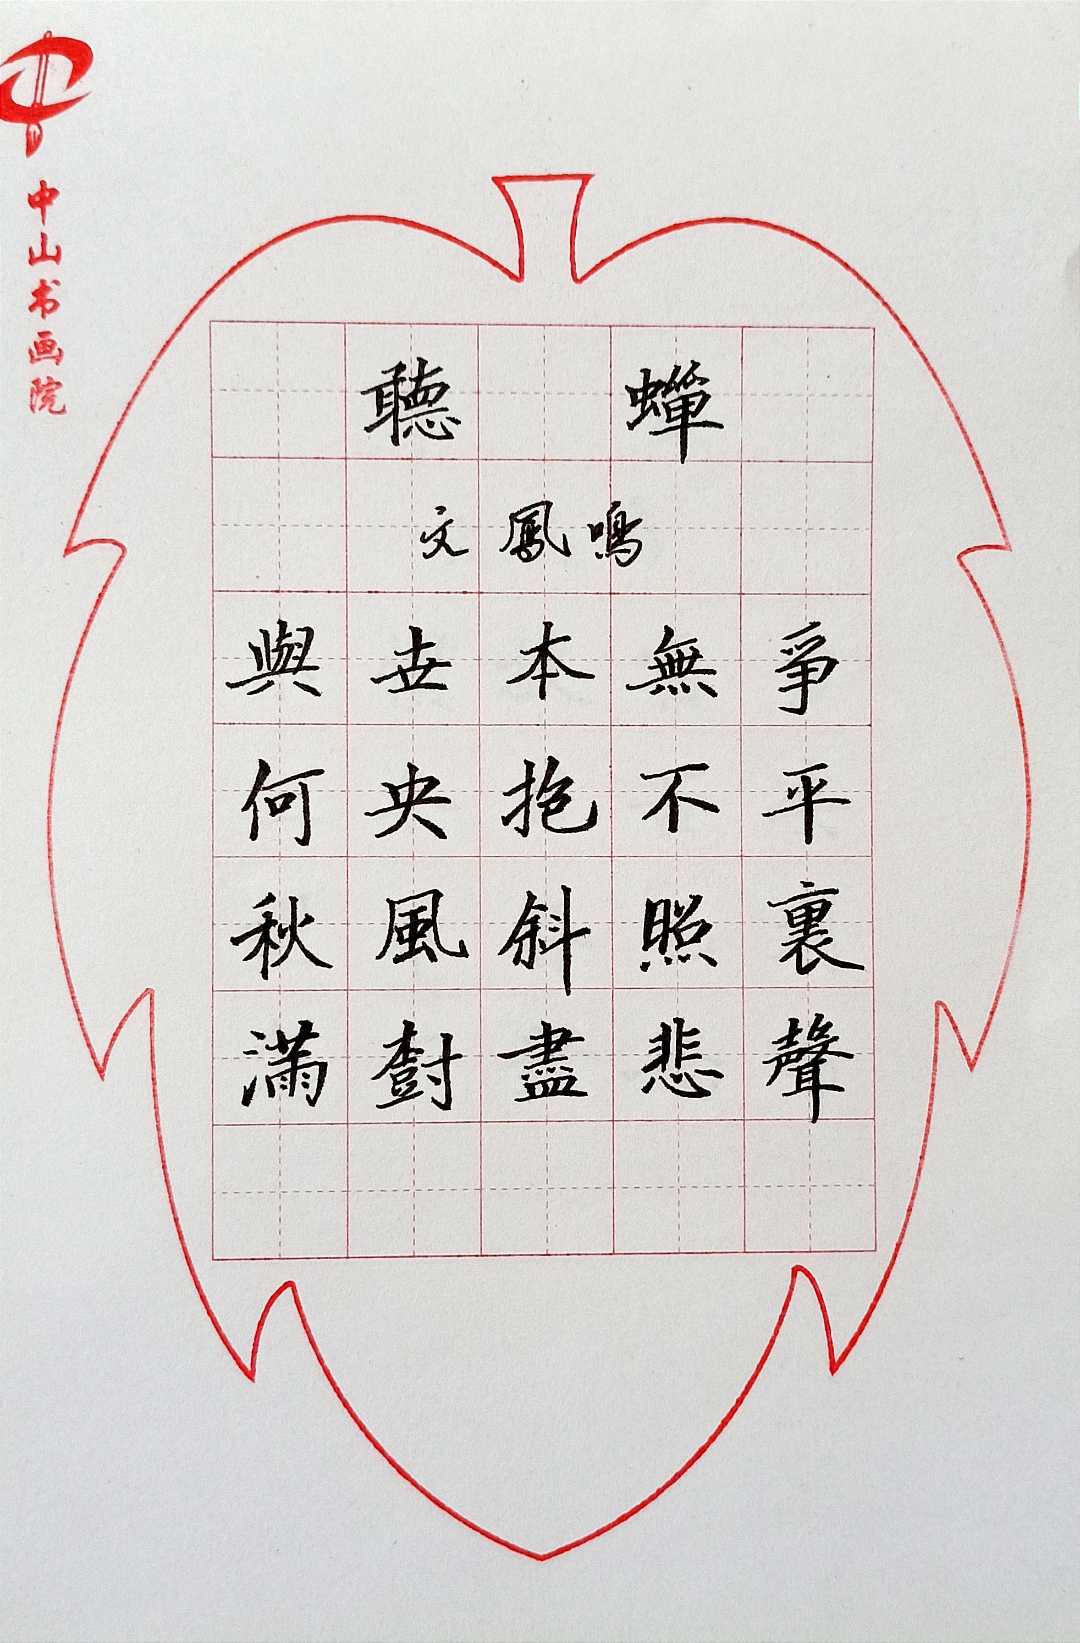 中山书画院
聽蟬
文鳳鳴
與世本無爭
何央抱不平
秋風斜照裏
滿樹盡悲聲